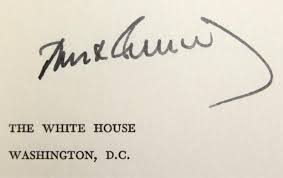 THE WHITE HOUSE
WASHINGTON, D.C.